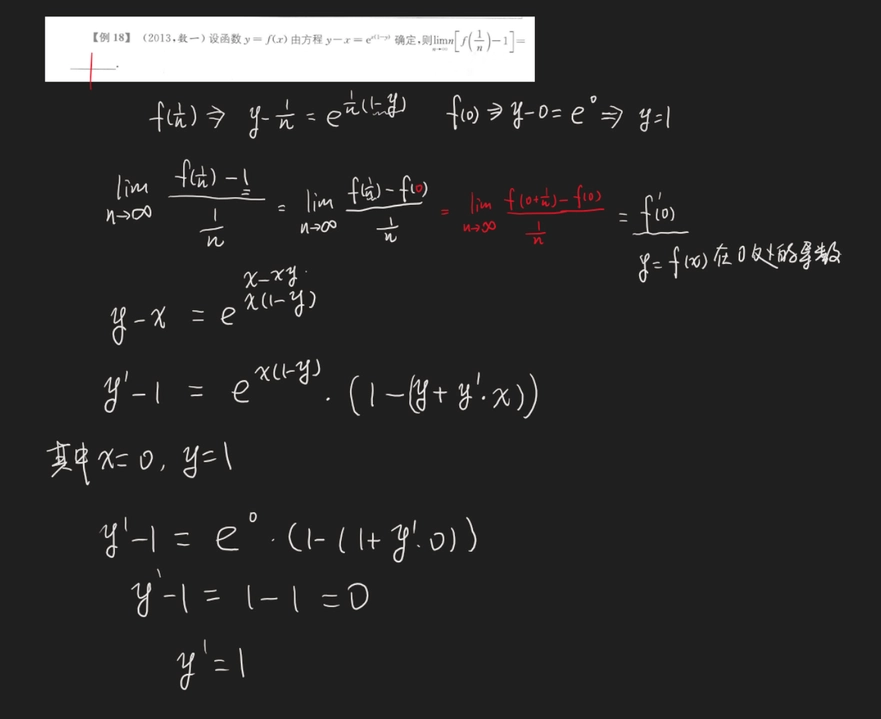 【例 18】 (2013,数一) 设函数 y = f(x) 由方程 y−x = e^{x(1−y)} 确定,则 lim_{n→∞} n[f(1/n)−1] =
1 .
f(1/n) ⇒ y − 1/n = e^{1/n(1−y)}    f(0) ⇒ y−0 = e^0 ⇒ y=1
lim_{n→∞} (f(1/n) − 1)/(1/n) = lim_{n→∞} (f(1/n) − f(0))/(1/n) = lim_{n→∞} (f(0+1/n) − f(0))/(1/n) = f'(0)
y = f(x) 在 0 处的导数
x−xy
y−x = e^{x(1−y)}
y'−1 = e^{x(1−y)} · (1−(y+y'·x))
其中 x=0, y=1
y'−1 = e^0 · (1−(1+y'·0))
y'−1 = 1−1 = 0
y' = 1